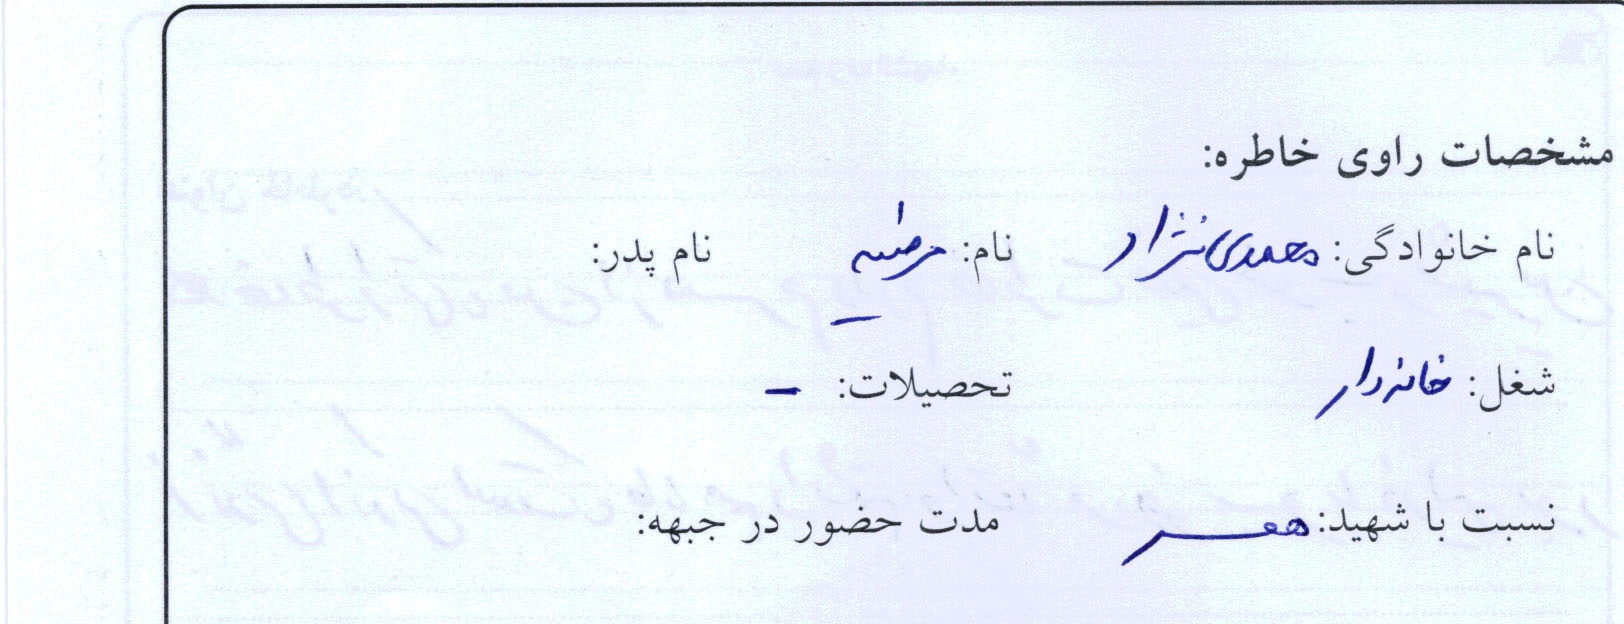 مشخصات راوی خاطره:
نام خانوادگی: محمدی نژاد نام: مرضیه نام پدر:
شغل: خانه‌دار تحصیلات: –
نسبت با شهید: همسر مدت حضور در جبهه: